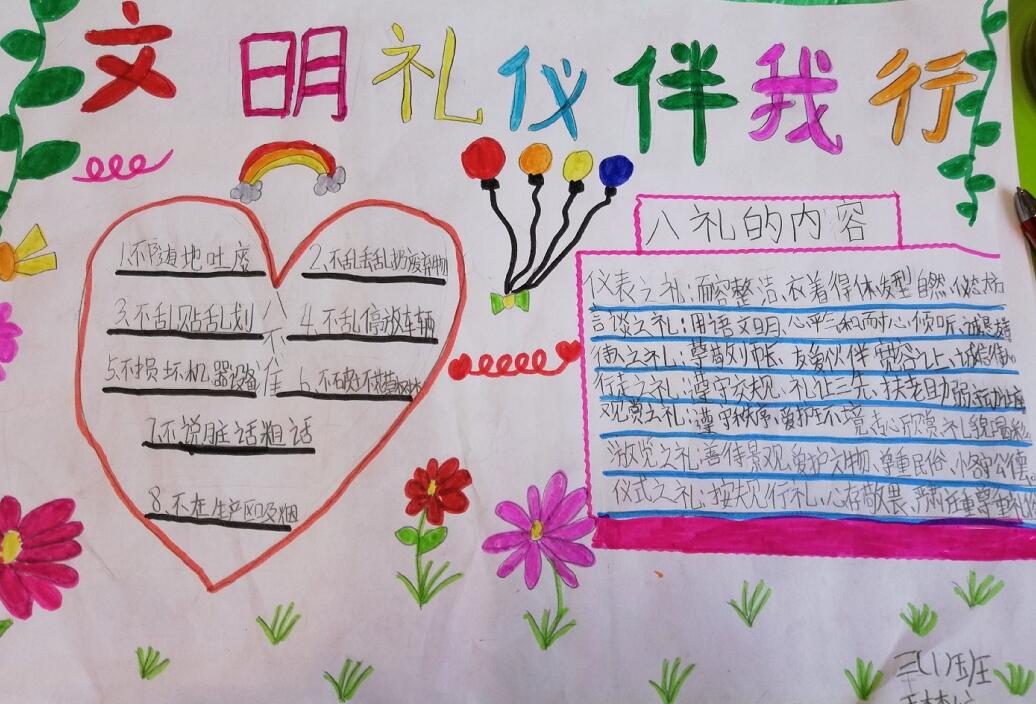 文明礼仪伴我行
1.不随地吐痰
2.不乱丢乱扔废弃物
3.不乱贴乱划
4.不乱停放车辆
八不准
5.不损坏机器设备
6.不破坏
7.不说脏话粗话
8.不在生产区吸烟
八礼的内容
仪表之礼:面容整洁、衣着得体、发型自然、仪态
言谈之礼:用语文明、心平气和、耐心倾听、诚恳
待人之礼:尊敬师长、友爱伙伴、宽容礼让、诚信待
行走之礼:遵守交规、礼让三先、扶老助弱、主动让
观赏之礼:遵守秩序、爱护环境、专心欣赏、礼貌
游览之礼:善待景观、爱护文物、尊重民俗、恪守公德
仪式之礼:按规行礼、心存敬畏、严肃庄重、尊重礼
三(1)班